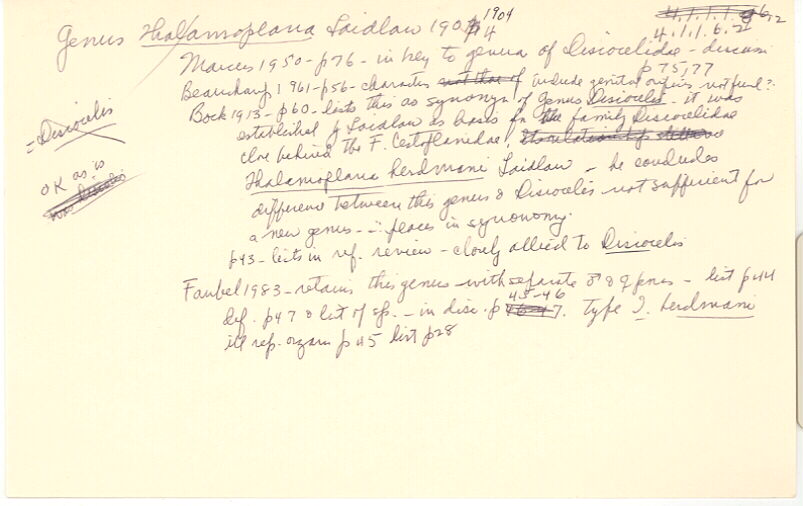 Genus Thalamoplana Laidlaw 1904 1904
4.1.1.1.6.2
4.1.1.6.2
Marcus 1950 - p76 - in key to genera of Discocelidae - discussi
p75,77
Beauchamp 1961 - p56 - characters not that of include genital orifices not fused?
Bock 1913 - p60 - lists this as synonym of genus Discocelis - it was
established by Laidlaw as basis for the family Discocelidae
= Discocelis
close behind the F. Cestoplanidae, Its relationship
OK as is
was Discocelis
Thalamoplana herdmani Laidlaw - he concludes
difference between this genus & Discocelis not sufficient for
a new genus - ∴ places in synonomy.
p43 - lists in ref. review - closely allied to Discocelis
Faubel 1983 - retains this genus - with separate ♂ & ♀ pores - list p44
45-46
def. p47 & list of sp. - in disc. p 46-47. type T. herdmani
ill rep. organ p45 list p28